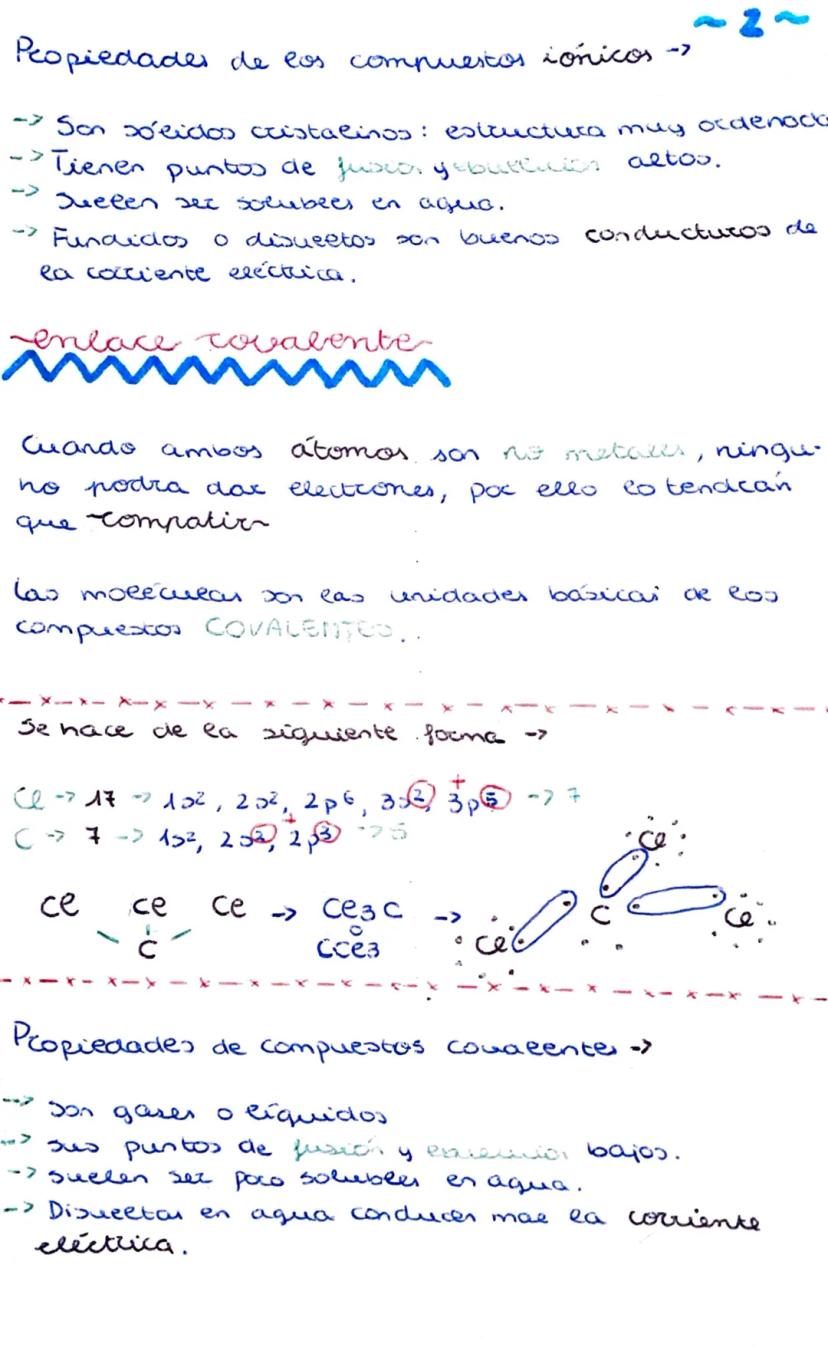 ~2~
Propiedades de los compuestos iónicos ->
-> Son sólidos cristalinos: estructura muy ordenada
-> Tienen puntos de fusión y ebullición altos.
-> Suelen ser solubles en agua.
-> Fundidos o disueltos son buenos conducturos de
la corriente eléctrica.
~enlace covalente~
Cuando ambos átomos son no metales, ningu-
no podra dar electrones, por ello lo tendrán
que compatir
Las moléculas son las unidades básicas de los
compuestos COVALENTES..
Se hace de la siguiente forma ->
Cl -> 17 -> 1s², 2s², 2p⁶, 3s², + 3p⁵ -> 7
C -> 7 -> 1s², 2s², + 2p³ -> 5
Cl Cl Cl -> Cl₃C -> Cl C Cl Cl
C
o
CCl₃
Propiedades de compuestos covalentes ->
-> Son gases o líquidos
-> Sus puntos de fusión y bajos.
-> Suelen ser poco solubles en agua.
-> Disueltas en agua conducen mal la corriente
eléctrica.